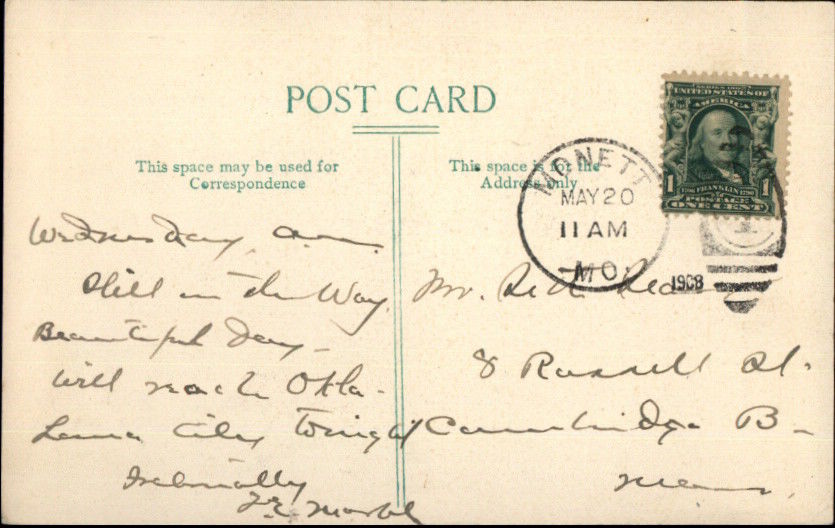 POST CARD
This space may be used for
Correspondence
This space is for the
Address only
SERIES 1902
UNITED STATES OF
AMERICA
1 FRANKLIN 1
POSTAGE
ONE CENT
MONETT
MAY 20
11 AM
MO.
1908
Wednesday a.m.
Still on the Way.
Beautiful Day
Will reach Okla-
homa City Tonight
Mr.
8 Russell St.
Cambridge B-
Mass.